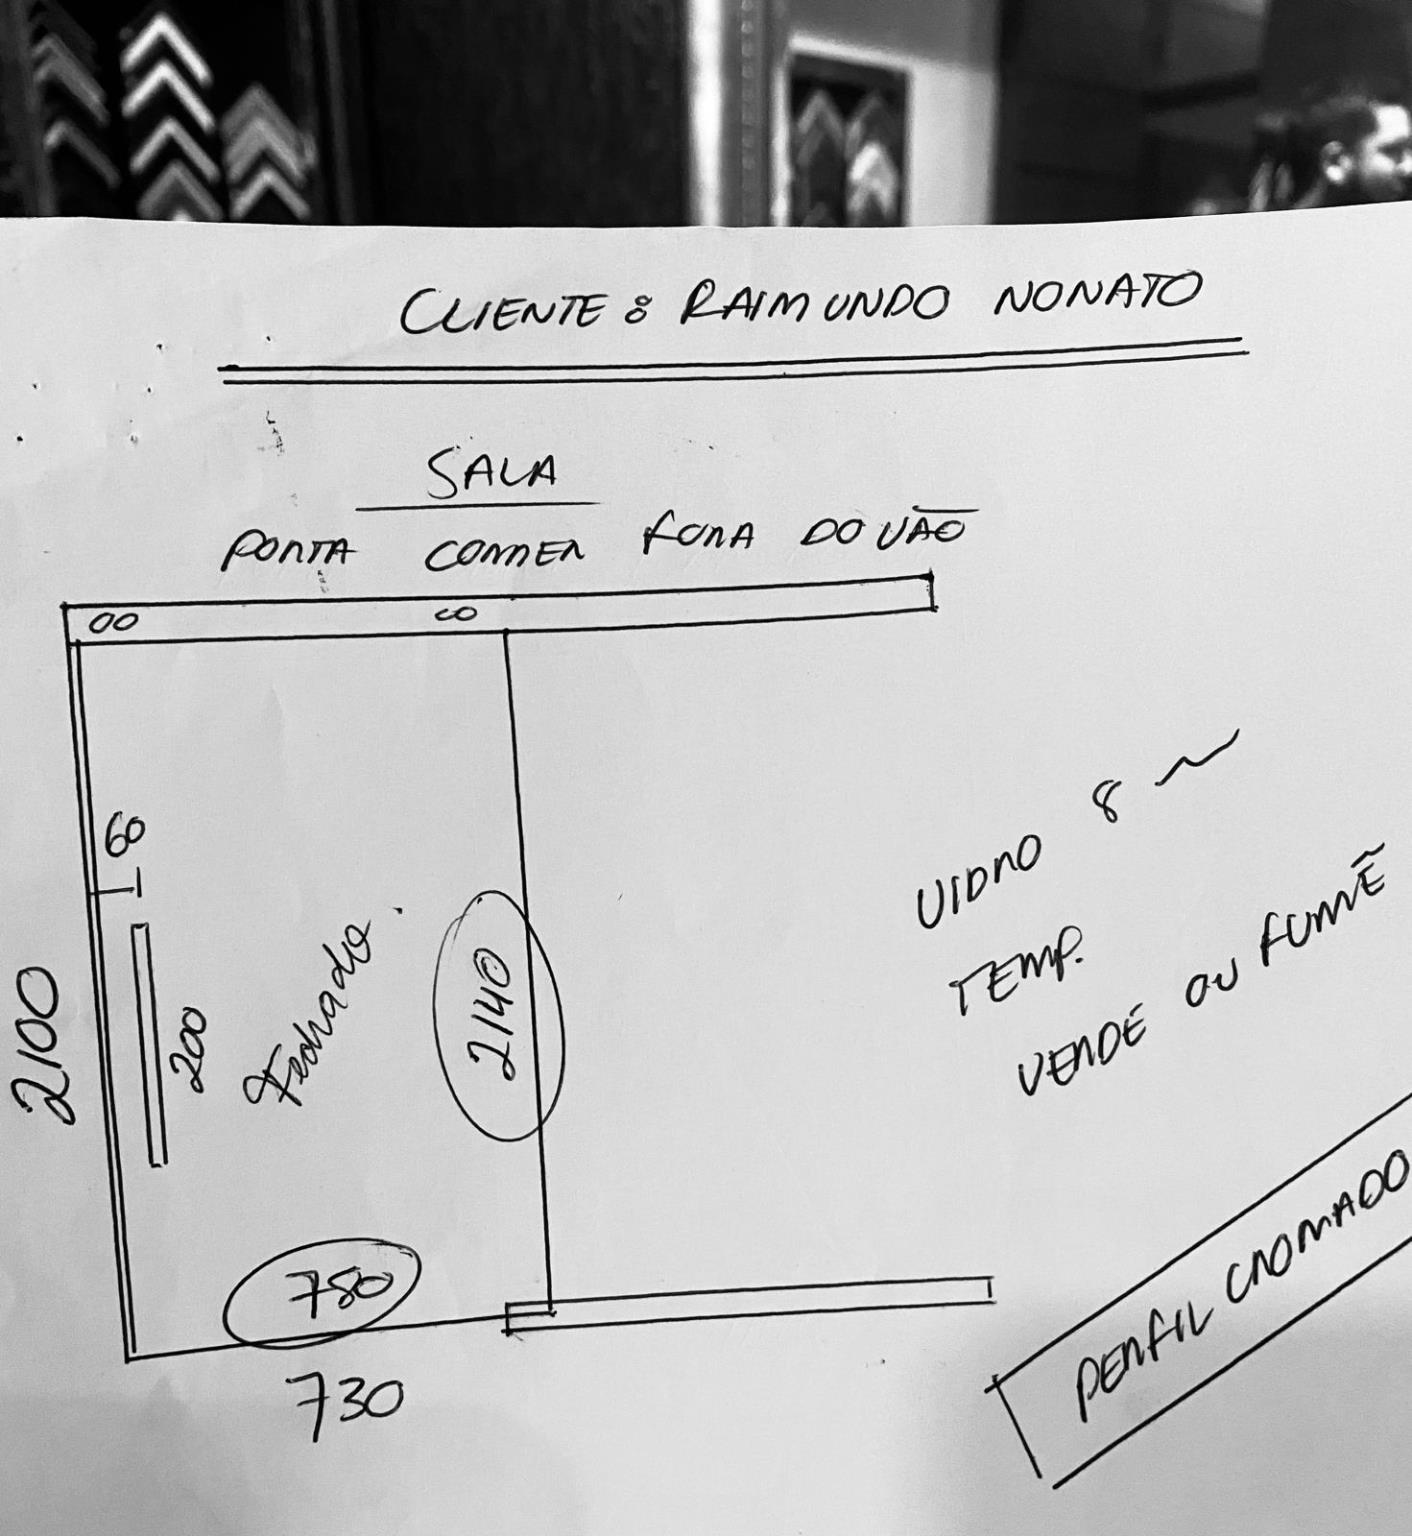 CLIENTE: RAIMUNDO NONATO
SALA
PORTA CORRER FORA DO VÃO
60
2100
200
Fechado.
2140
780
730
VIDRO 8 m
TEMP.
VERDE OU FUMÊ
PERFIL CROMADO